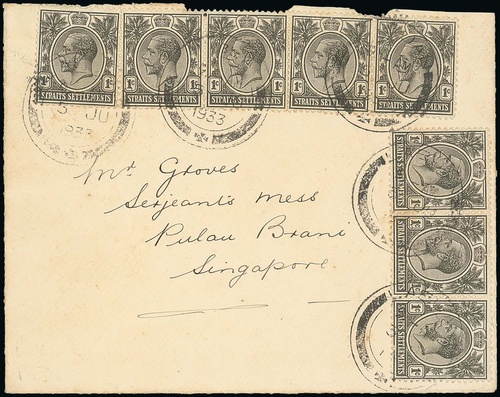 1c 1c
STRAITS SETTLEMENTS
1c 1c
STRAITS SETTLEMENTS
1c 1c
STRAITS SETTLEMENTS
1c 1c
STRAITS SETTLEMENTS
1c 1c
STRAITS SETTLEMENTS
5 JU
1933
1933
Mr Groves
Serjeants Mess
Pulau Brani
Singapore
1c 1c
STRAITS SETTLEMENTS
1c 1c
STRAITS SETTLEMENTS
1c 1c
STRAITS SETTLEMENTS